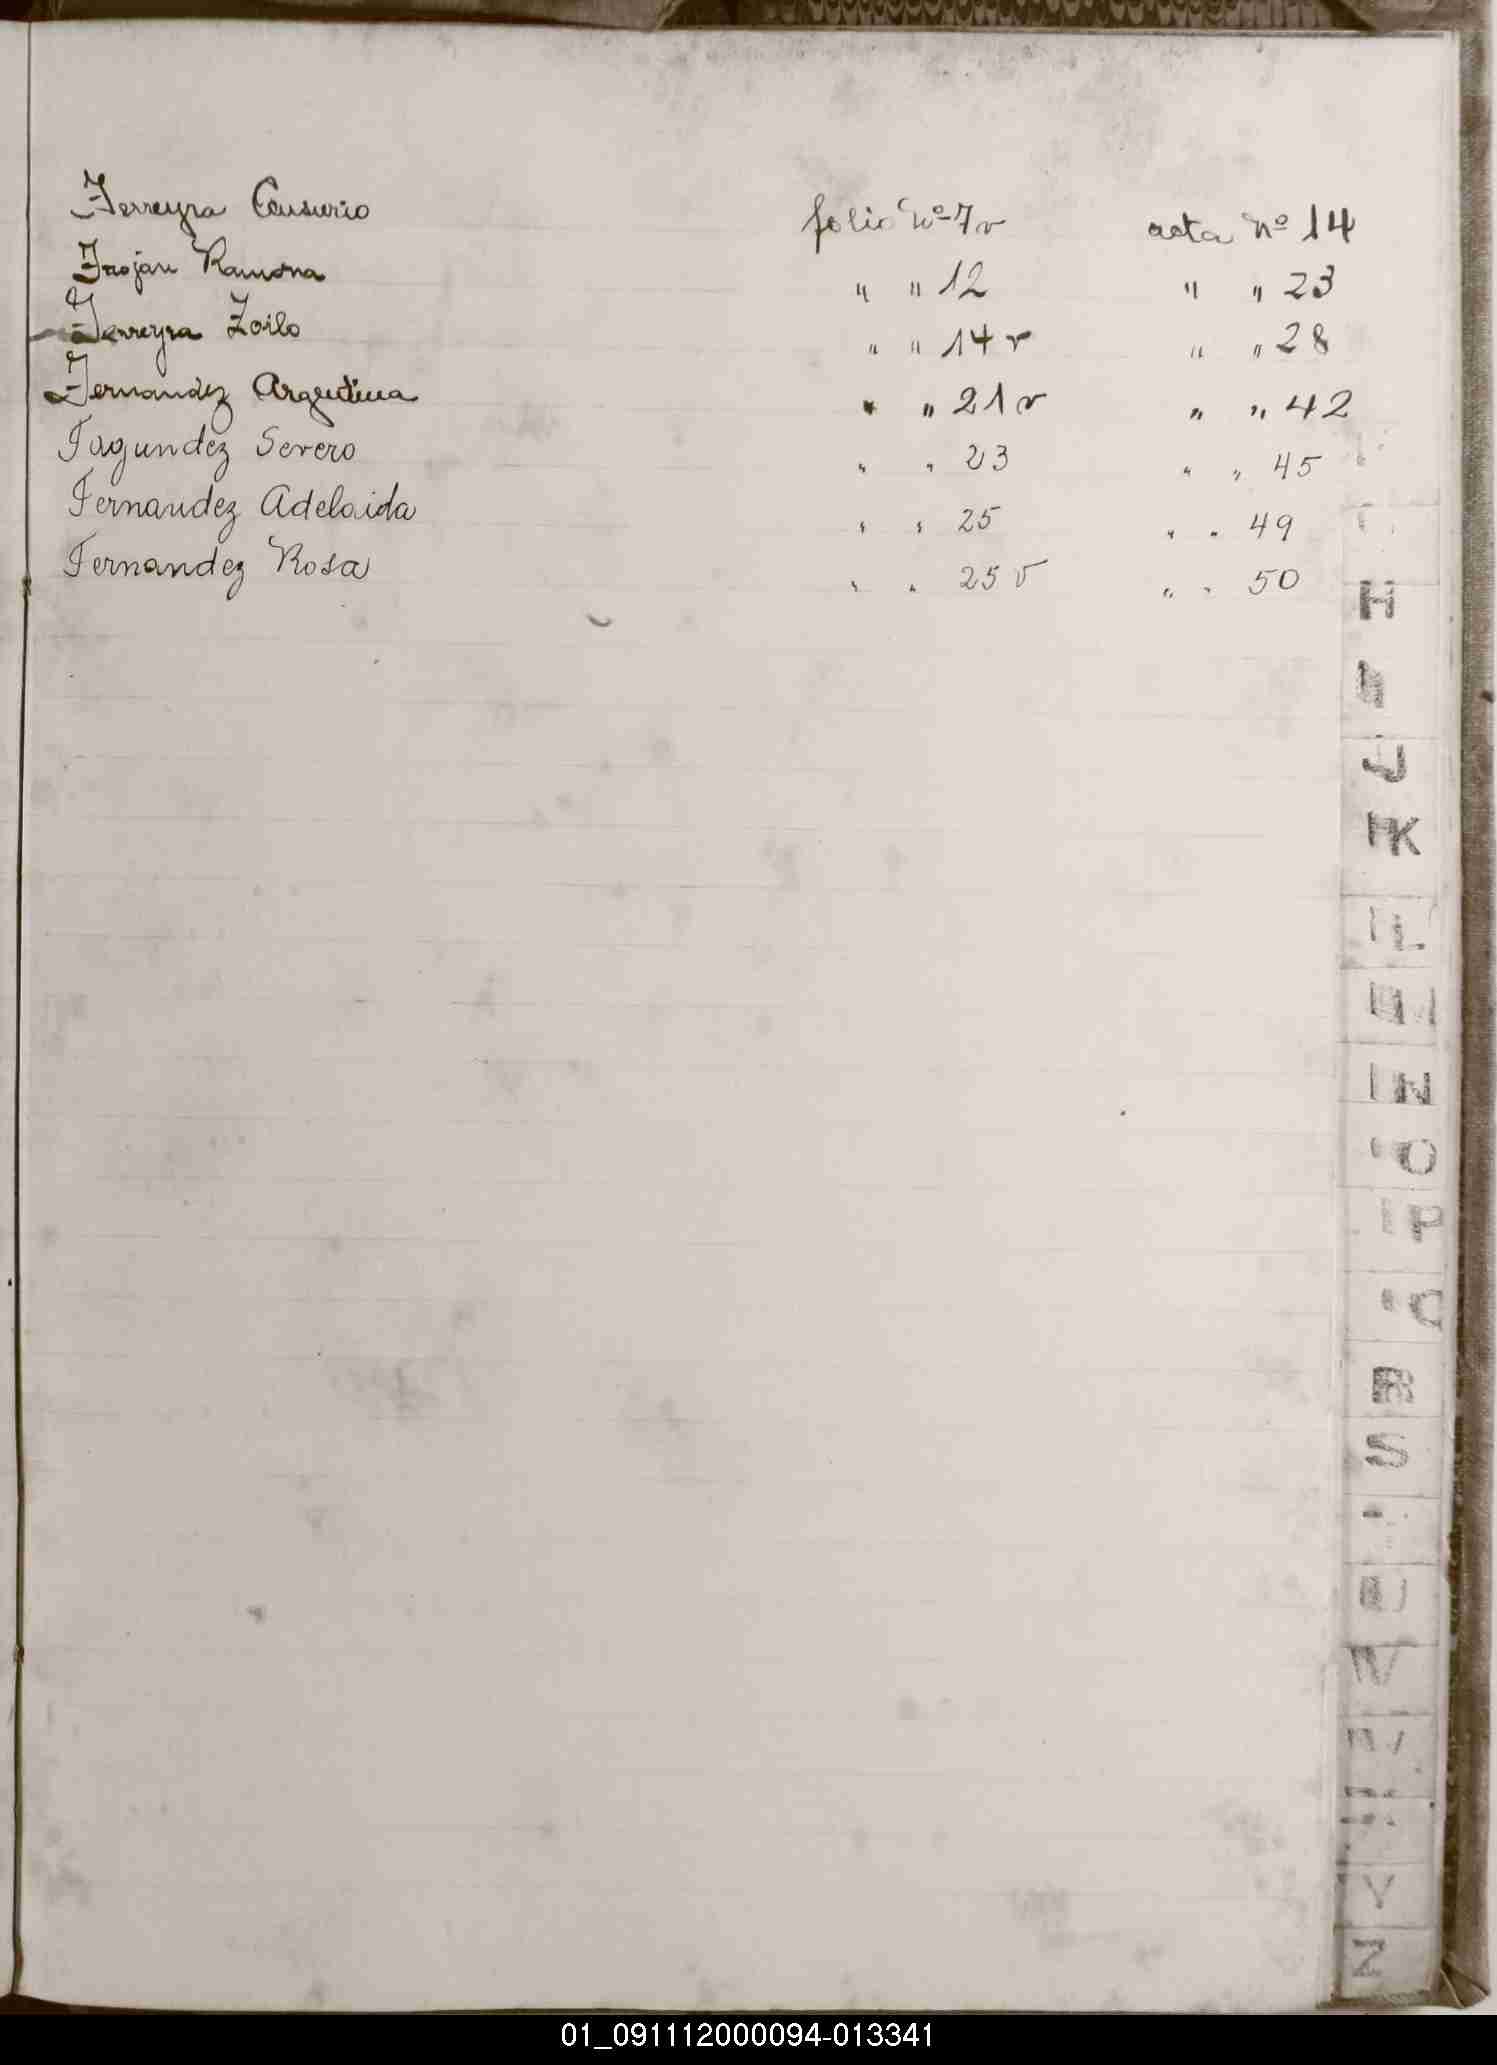 Ferreyra Censurio folio Nº 7v acta Nº 14
Frojan Ramona " " 12 " " 23
Ferreyra Zoilo " " 14 v " " 28
Fernandez Argentina " " 21 v " " 42
Fagundez Severo " " 23 " " 45
Fernandez Adelaida " " 25 " " 49
Fernandez Rosa " " 25 v " " 50
H
J
K
N
O
P
R
S
U
V
Z
01_091112000094-013341